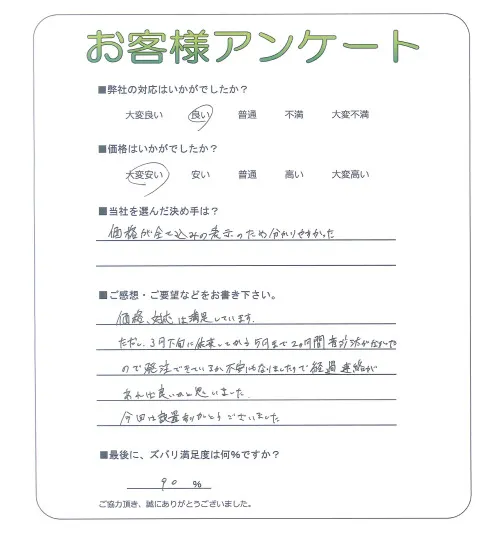 お客様アンケート
■弊社の対応はいかがでしたか？
大変良い 良い 普通 不満 大変不満
■価格はいかがでしたか？
大変安い 安い 普通 高い 大変高い
■当社を選んだ決め手は？
価格が全て込みの表示のため分かりやすかった
■ご感想・ご要望などをお書き下さい。
価格、対応は満足しています。
ただし、3月下旬に依頼してから5月まで2ヶ月間音沙汰がなかった
ので発注できているか不安になりましたので経過連絡が
あれば良いかと思いました。
今回は設置ありがとうございました
■最後に、ズバリ満足度は何％ですか？
90 %
ご協力頂き、誠にありがとうございました。